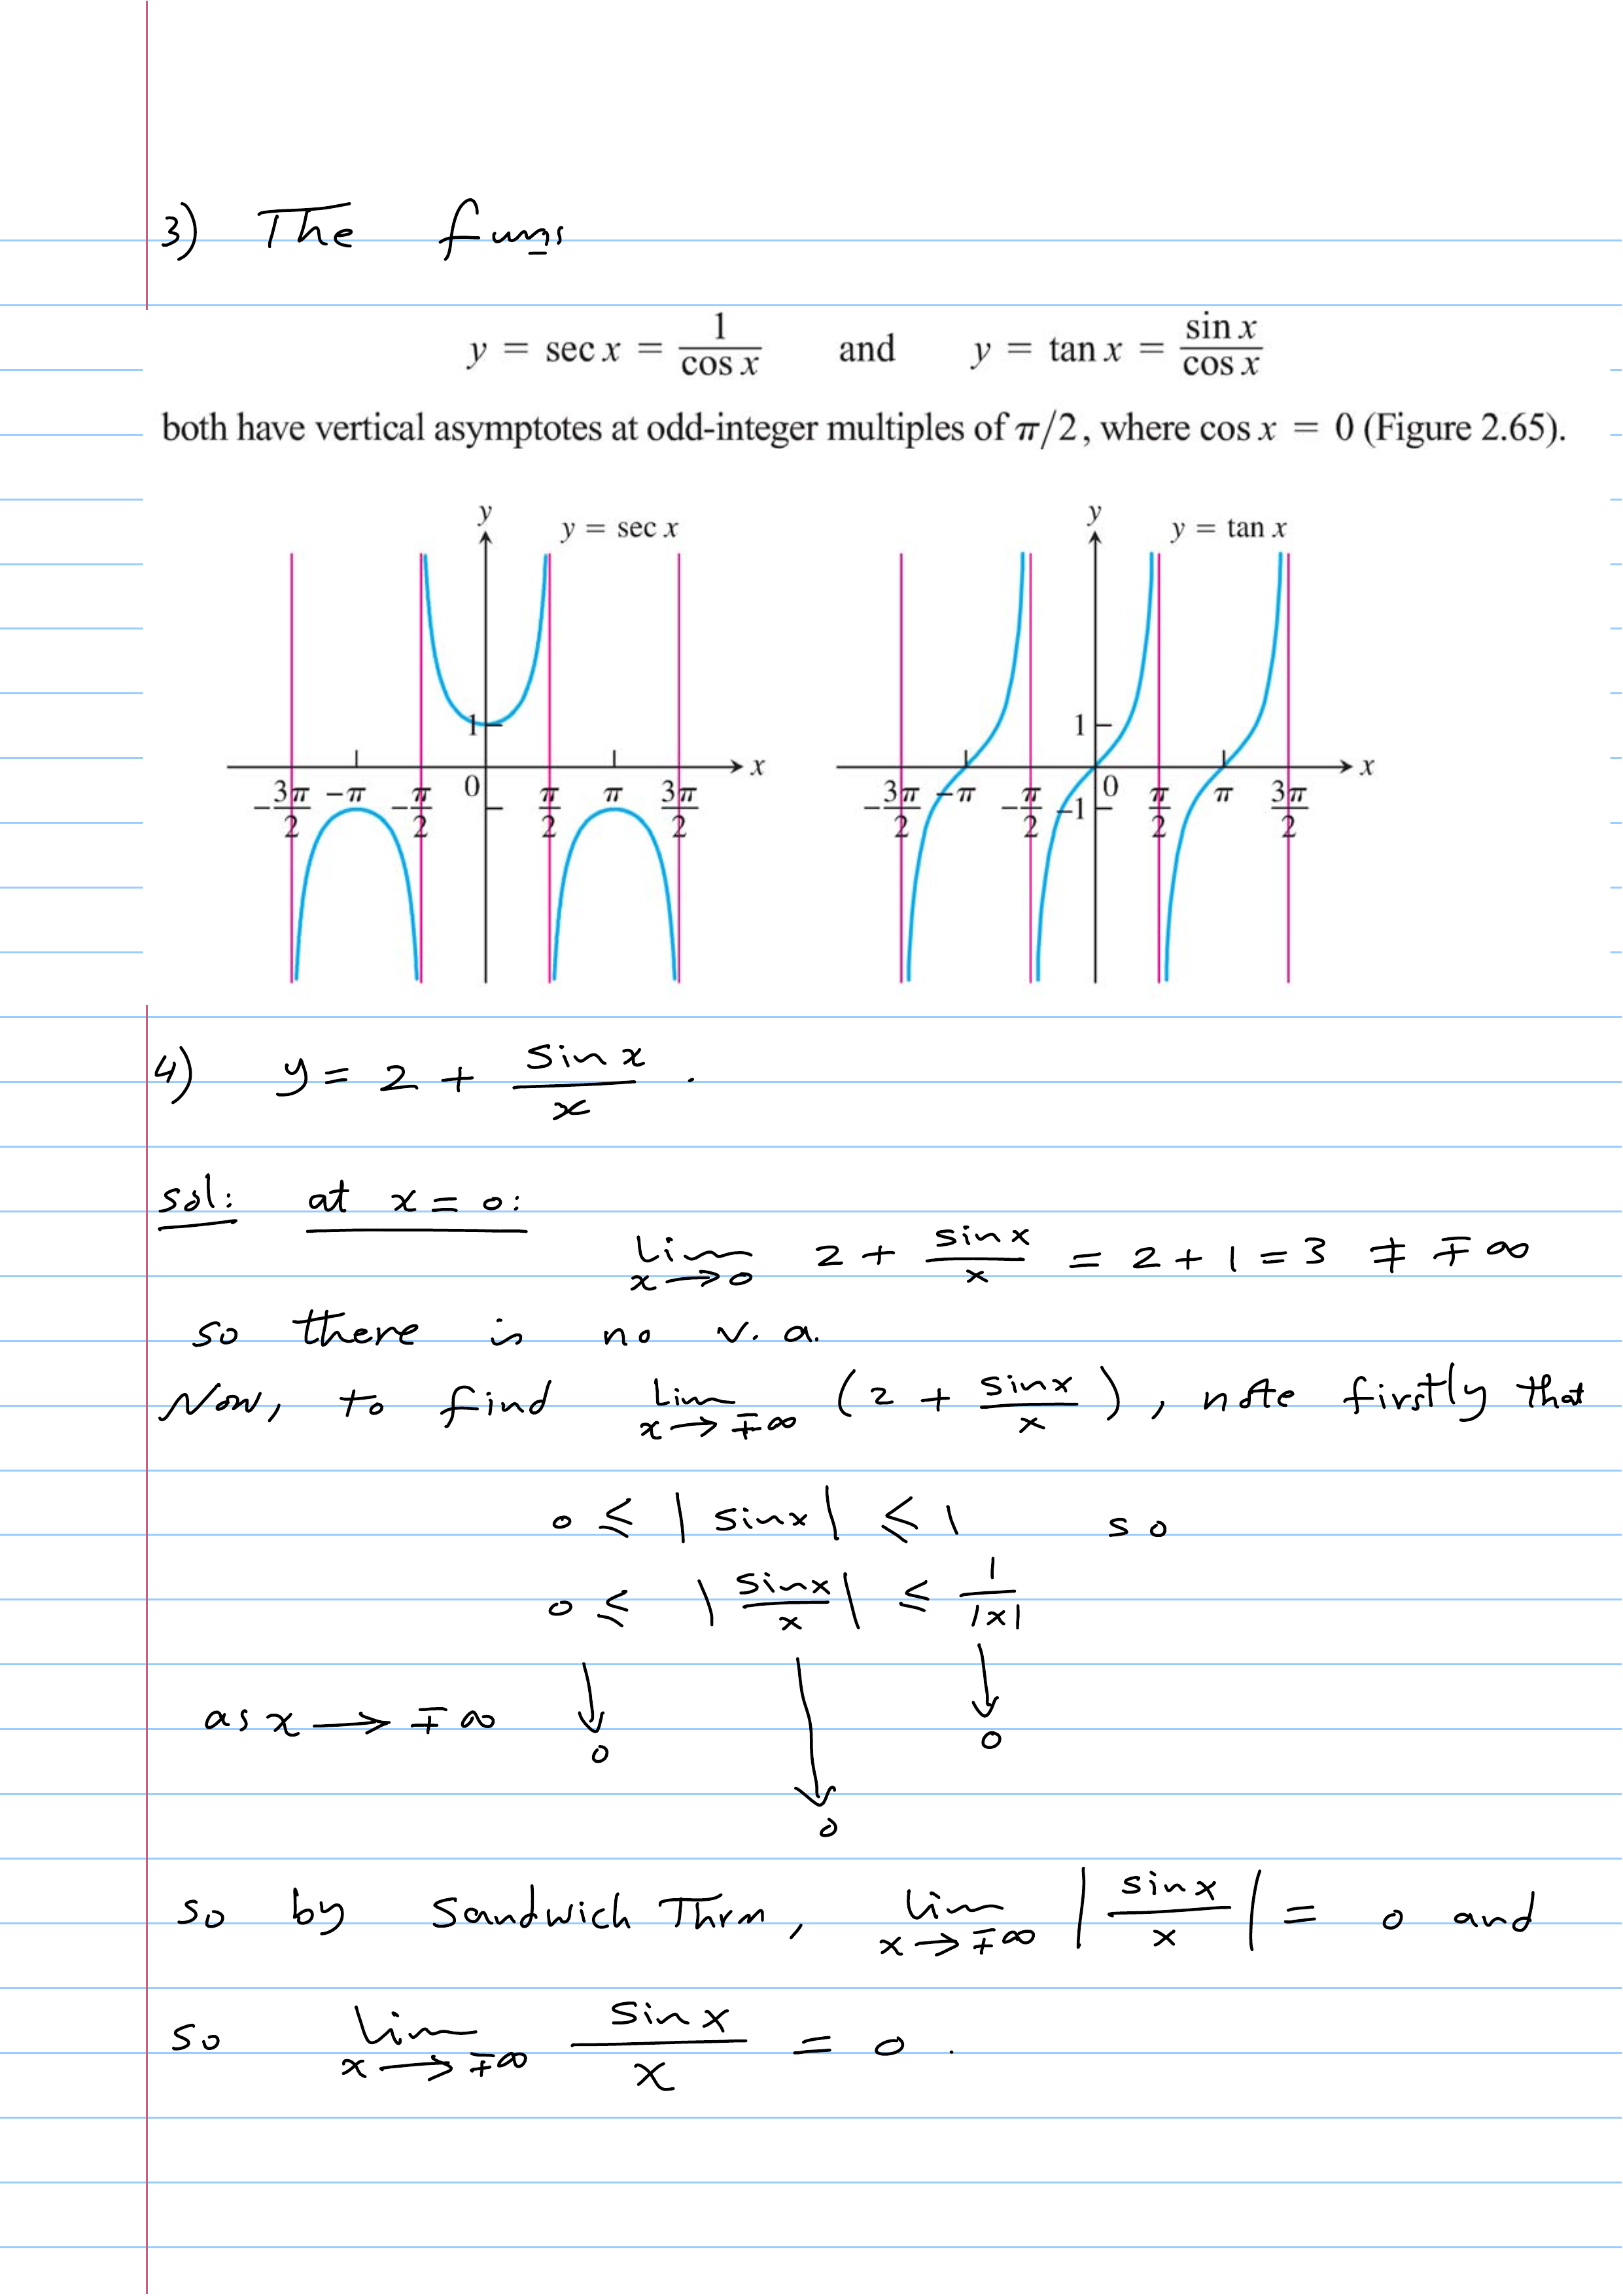 3) The funs
y = sec x = 1/cos x and y = tan x = sin x/cos x
both have vertical asymptotes at odd-integer multiples of π/2, where cos x = 0 (Figure 2.65).
y y = sec x
1
0 x
-3π/2 -π -π/2 π/2 π 3π/2
y y = tan x
1
0 x
-3π/2 -π -π/2 -1 π/2 π 3π/2
4) y = 2 + sin x/x .
sol: at x = 0:
Lim x→0 2 + sin x/x = 2 + 1 = 3 ≠ ∓∞
so there is no v. a.
Now, to find Lim x→∓∞ (2 + sin x/x), note firstly that
0 ≤ |sin x| ≤ 1 so
0 ≤ |sin x/x| ≤ 1/|x|
as x → ∓∞ ↓ 0 ↓ 0 ↓ 0
so by Sandwich Thrm, Lim x→∓∞ |sin x/x| = 0 and
so Lim x→∓∞ sin x/x = 0 .